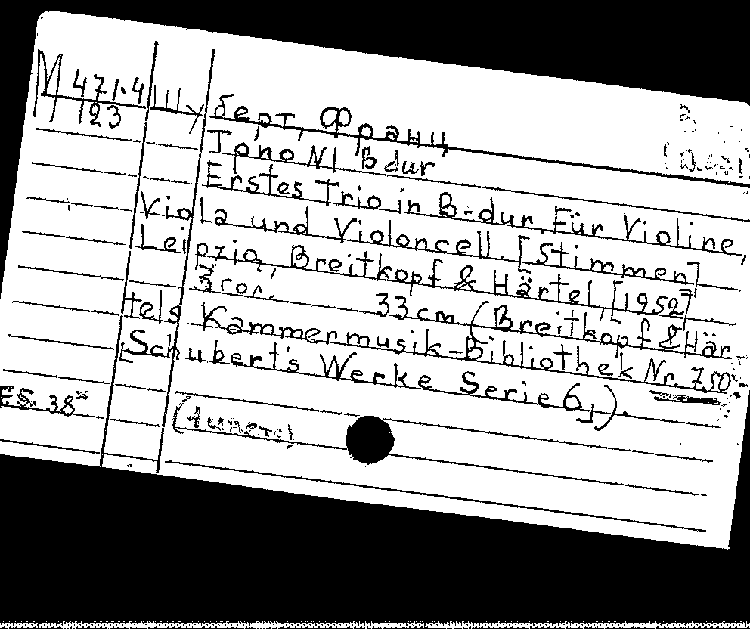 M 471.4
123
Шуберт, Франц
Трио N1 B dur
Erstes Trio in B-dur. Für Violine,
Viola und Violoncell. [Stimmen]
Leipzig, Breitkopf & Härtel, [1952]
33 cm (Breitkopf & Här-
tels Kammermusik-Bibliothek Nr. 750-
[Schubert's Werke Serie 6,]).